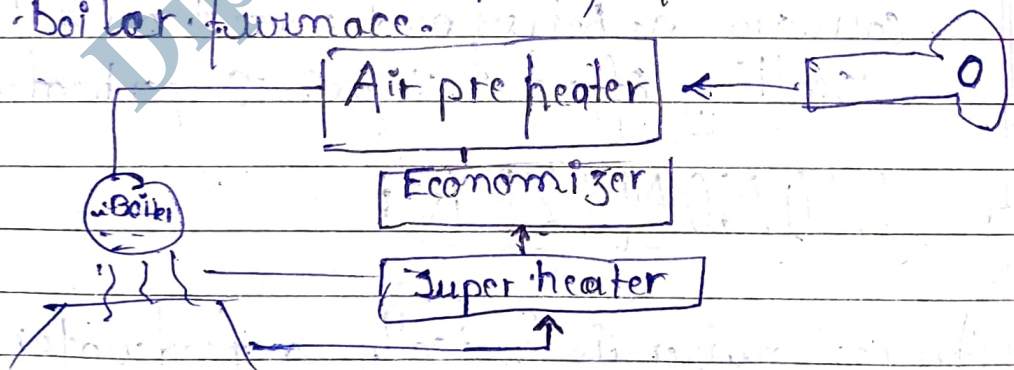 boiler furnace.
Air pre heater
Economizer
Boiler
Super heater